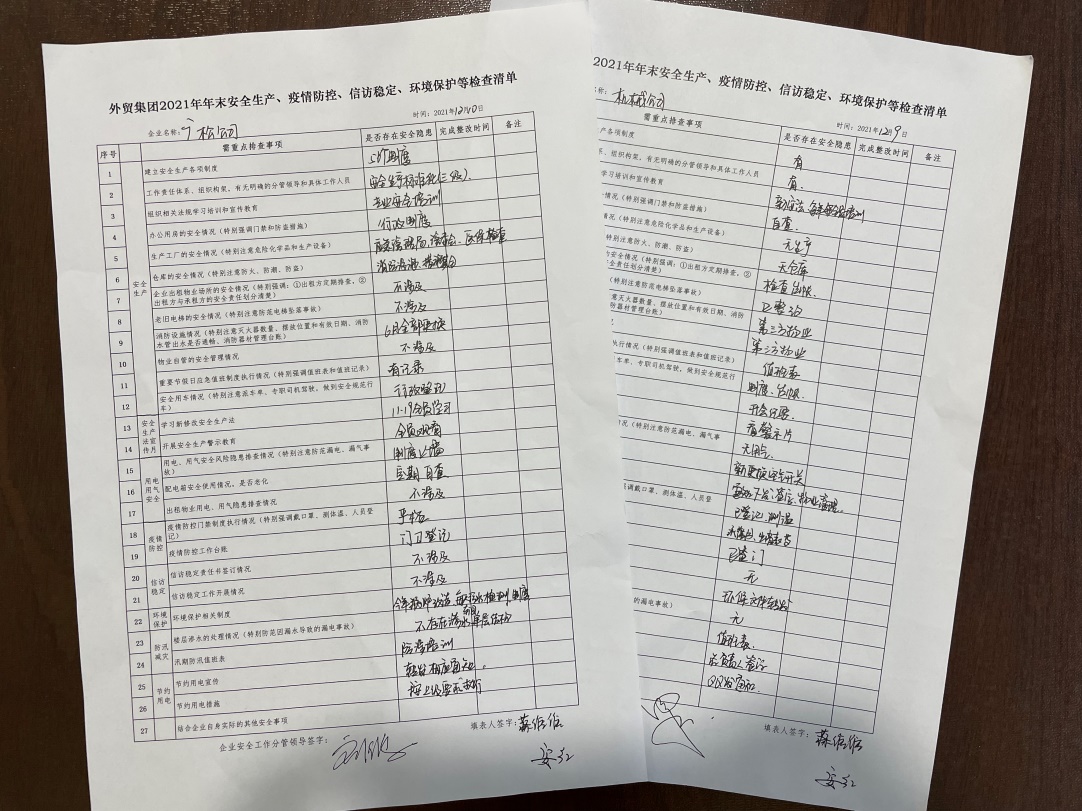 外贸集团2021年年末安全生产、疫情防控、信访稳定、环境保护等检查清单
企业名称: 广松公司 时间: 2021年12月10日
序号 需重点排查事项 是否存在安全隐患 完成整改时间 备注
安全生产
1 建立安全生产各项制度
2 工作责任体系、组织构架、有无明确的分管领导和具体工作人员 安全生产标准化(三级).
3 组织相关法规学习培训和宣传教育 专业安全培训
4 办公用房的安全情况(特别强调门禁和防盗措施) 行政制度
5 生产工厂的安全情况(特别注意危险化学品和生产设备)
6 仓库的安全情况(特别注意防火、防潮、防盗)
7 企业出租物业场所的安全情况(特别强调:①出租方定期排查,②出租方与承租方的安全责任划分清楚) 不涉及
8 老旧电梯的安全情况(特别注意防范电梯坠落事故) 不涉及
9 消防设施情况(特别注意灭火器数量、摆放位置和有效日期、消防水管出水是否通畅、消防器材管理台账) 6月全部更换
10 物业自管的安全管理情况 不涉及
11 重要节假日应急值班制度执行情况(特别强调值班表和值班记录) 有记录
12 安全用车情况(特别注意派车单、专职司机驾驶,做到安全规范行车) 行政登记
安全生产法宣传月
13 学习新修改安全生产法 11-19全员学习
14 开展安全生产警示教育 全员观看
用电用气安全
15 用电、用气安全风险隐患排查情况(特别注意防范漏电、漏气事故) 制度上墙
16 配电箱安全使用情况,是否老化 定期自查
17 出租物业用电、用气隐患排查情况 不涉及
疫情防控
18 疫情防控门禁制度执行情况(特别强调戴口罩、测体温、人员登记) 严格
19 疫情防控工作台账 门卫登记
信访稳定
20 信访稳定责任书签订情况 不涉及
21 信访稳定工作开展情况 不涉及
环境保护
22 环境保护相关制度
防汛减灾
23 楼层渗水的处理情况(特别防范因漏水导致的漏电事故)
24 汛期防汛值班表 防汛培训
节约用电
25 节约用电宣传 转发相应通知.
26 节约用电措施 按上级要求执行
27 结合企业自身实际的其他安全事项
企业安全工作分管领导签字: 填表人签字:
2021年年末安全生产、疫情防控、信访稳定、环境保护等检查清单
名称: 机械公司 时间: 2021年12月9日
需重点排查事项 是否存在安全隐患 完成整改时间 备注
产各项制度 有
系、组织构架、有无明确的分管领导和具体工作人员 有.
学习培训和宣传教育
情况(特别强调门禁和防盗措施) 自查.
情况(特别注意危险化学品和生产设备) 无生产
特别注意防火、防潮、防盗) 无仓库
的安全情况(特别强调:①出租方定期排查,②
全责任划分清楚) 检查台帐.
(特别注意防范电梯坠落事故) 已整治
意灭火器数量、摆放位置和有效日期、消防
防器材管理台账) 第三方物业
第三方物业
执行情况(特别强调值班表和值班记录) 值班表
车单、专职司机驾驶,做到安全规范行 制度、台帐.
开会纪要
看警示片
情况(特别注意防范漏电、漏气事 无用气.
新更换空气开关
强调戴口罩、测体温、人员登 已登记、测温
无
无
的漏电事故)
值班表.
填表人签字: